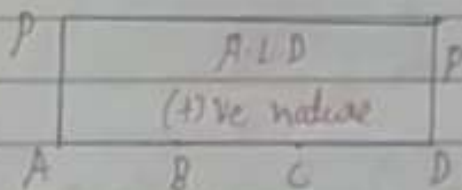 P A.L.D P
(+)ve nature
A B C D